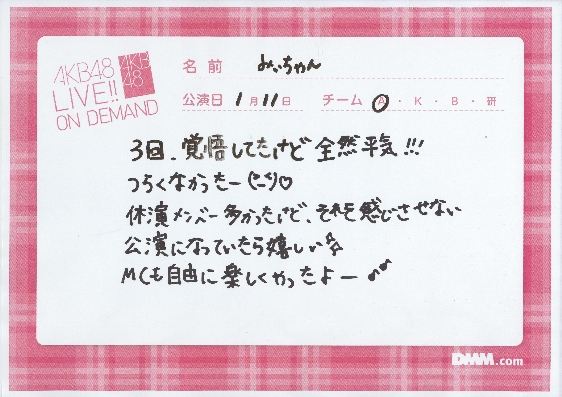 AKB48
LIVE!!
ON DEMAND
AKB
48
名前 みぃちゃん
公演日 1月11日 チーム A・K・B・研
3回、覚悟してたけど全然平気!!!
つらくなかったー(^-^)♡
休演メンバー多かったけど、それを感じさせない
公演になっていたら嬉しい☆
MCも自由に楽しくやったよー♪♪
DMM.com